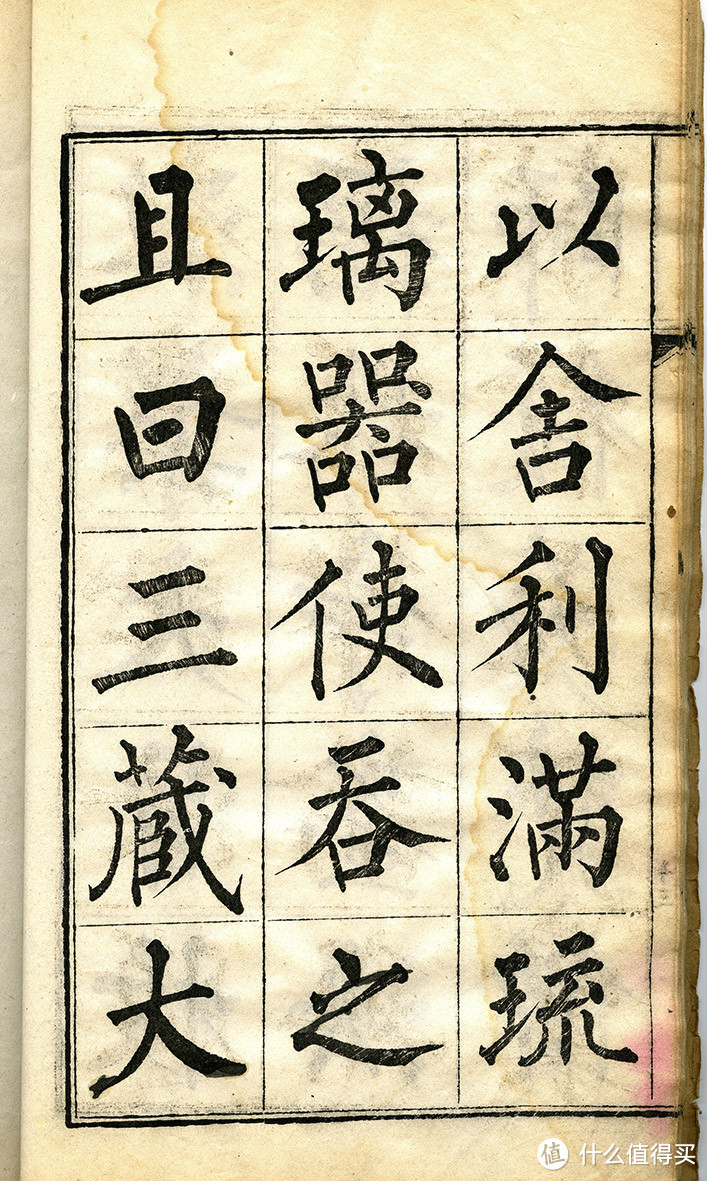 以舍利滿琉
璃器使吞之
且曰三藏大
值 什么值得买